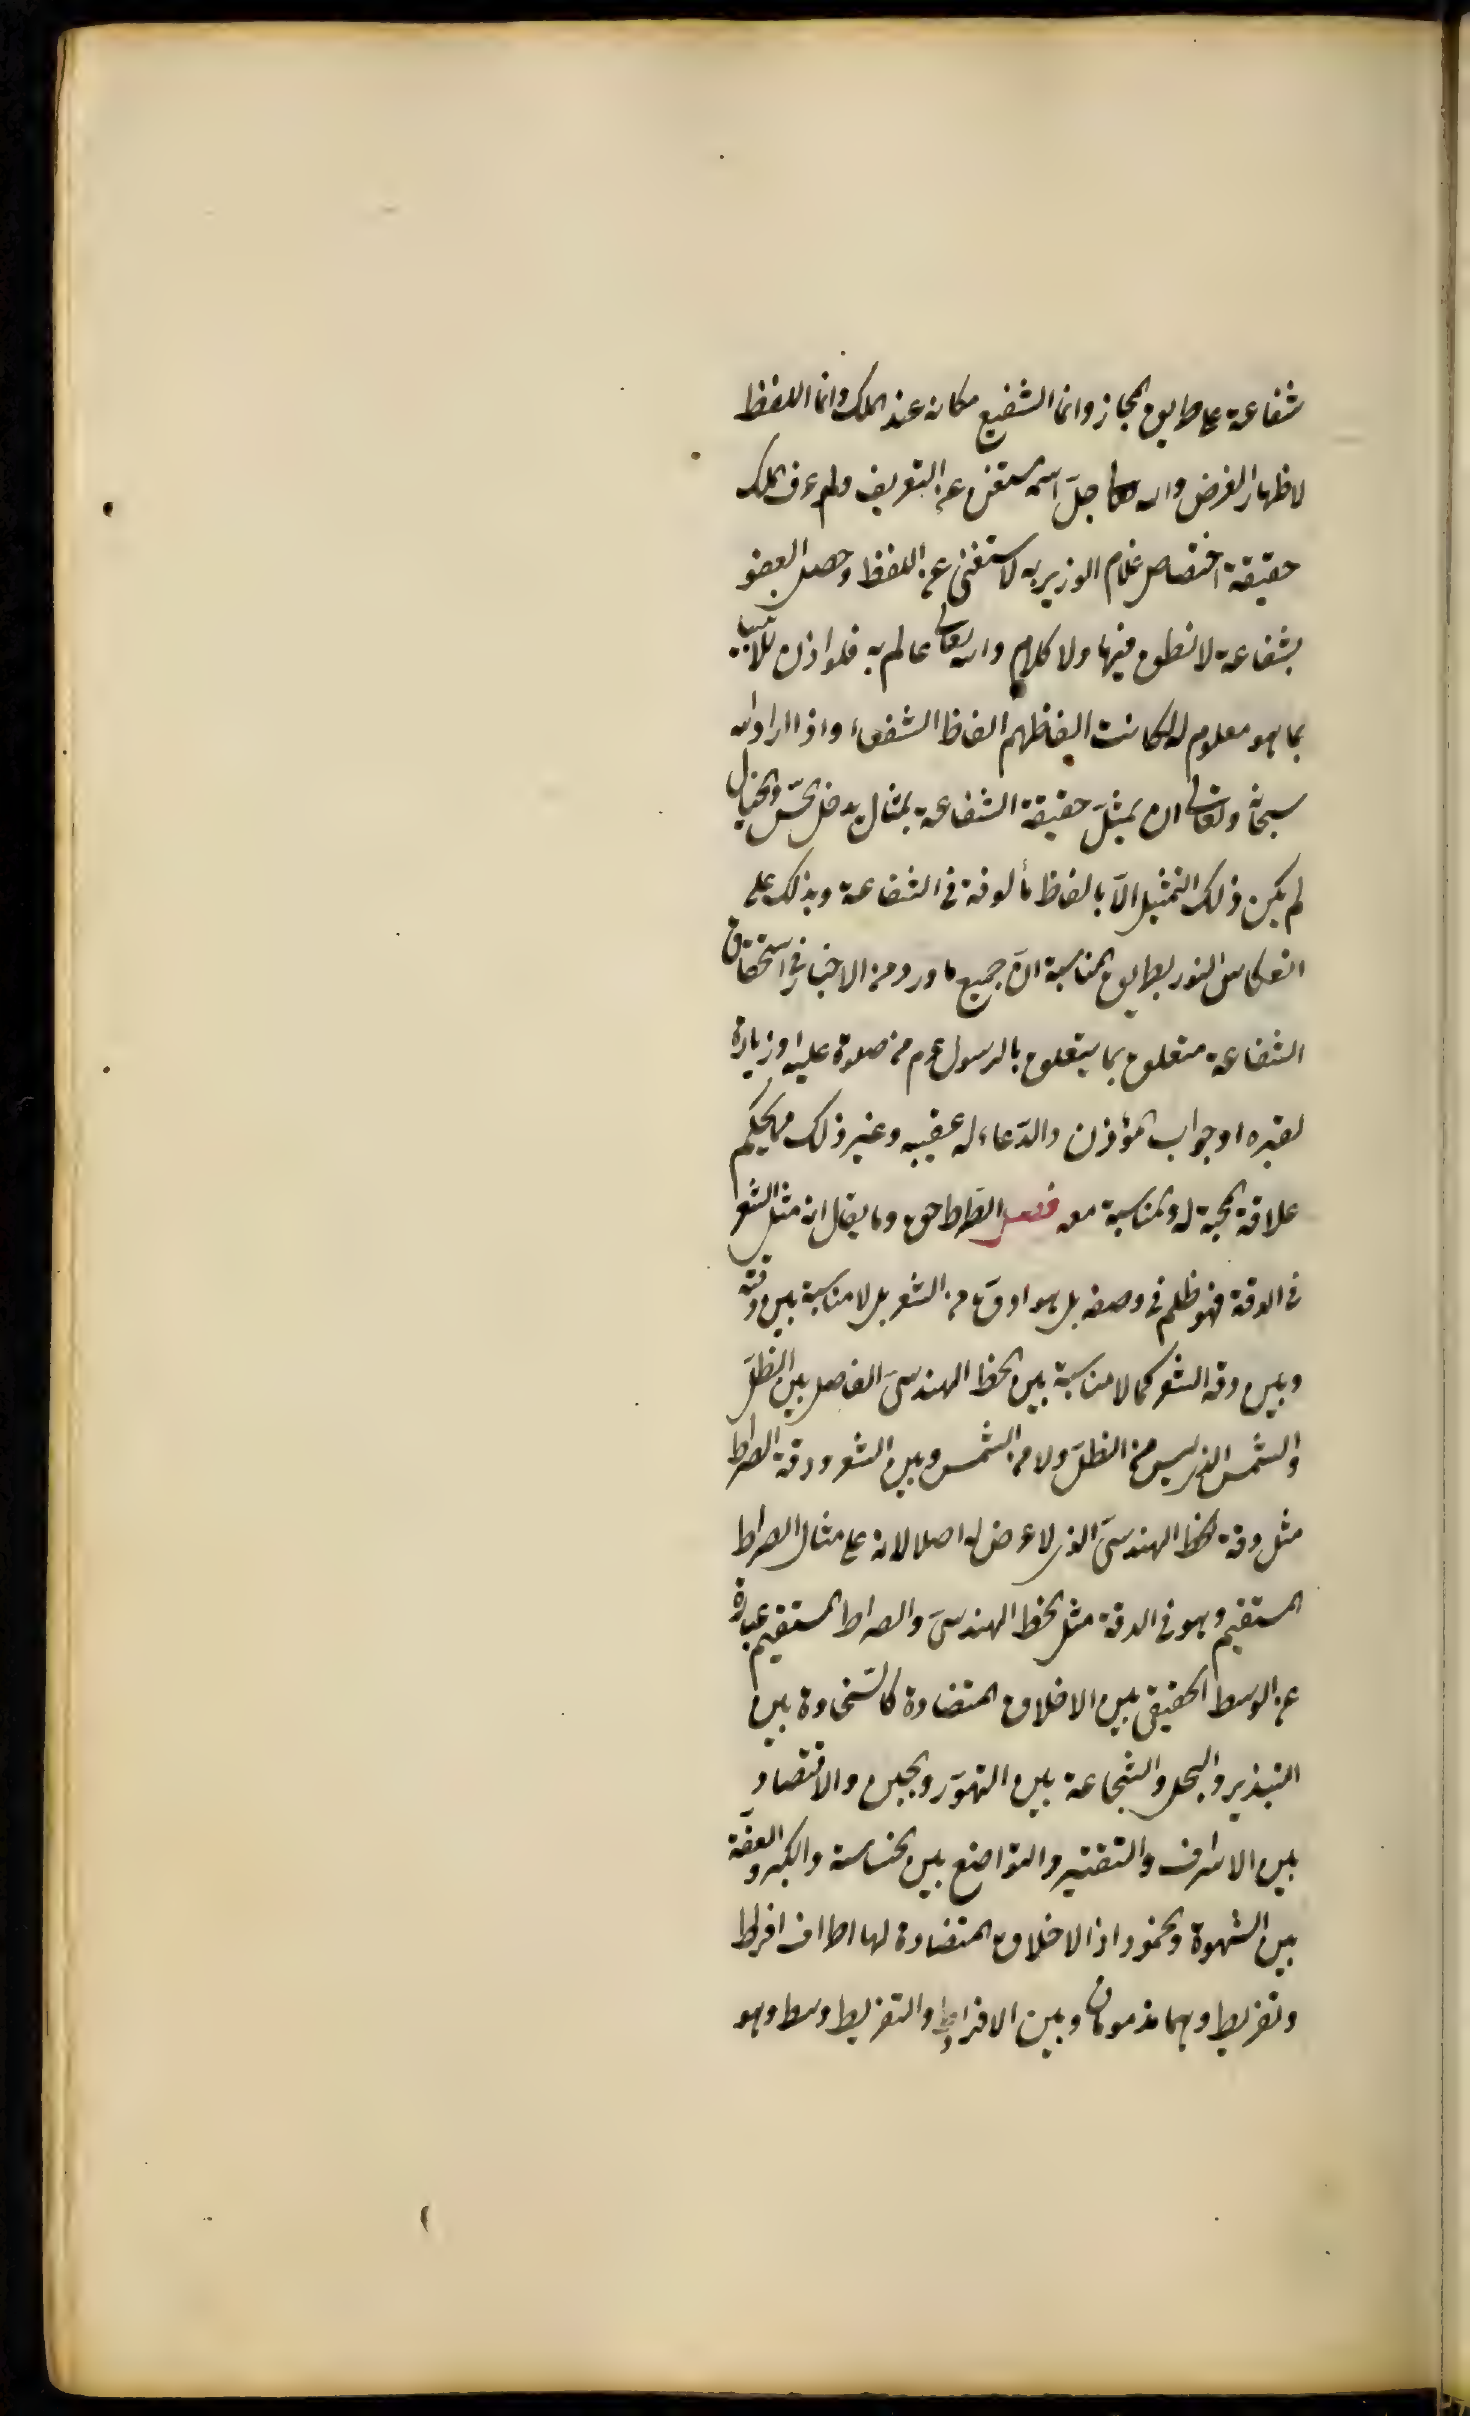 شفاعة على طريق المجاز وانما الشفيع مكانه عند الملك وانما اللفظ
لاظهار الغرض والله تعالى جلّ اسمه مستغن عن التعريف ولو عرف الملك
حقيقة اختصاص غلام الوزير به لاستغنى عن اللفظ وحصل العفو
بشفاعة لا نطق فيها ولا كلام والله تعالى عالم به فلو اذن للانبياء
بما هو معلوم له لكانت الفاظهم الفاظ الشفعاء واذا اراد الله
سبحانه وتعالى ان يمثّل حقيقة الشفاعة بمثال يدخل الحسّ والخيال
لم يكن ذلك التمثيل الّا بالفاظ مألوفة في الشفاعة ويدلك على
انعكاس النور بطريق المناسبة انّ جميع ما ورد من الاخبار في استحقاق
الشفاعة متعلق بما يتعلق بالرسول عم من صلوة عليه او زيارة
لقبره او جواب المؤذن والدّعاء له عقيبه وغير ذلك مما يحكم
علاقة المحبة له والمناسبة معه فصل الصّراط حق وما يقال انه مثل الشعر
في الدقة فهو ظلم في وصفه بل هو ادقّ من الشعر بل لا مناسبة بين دقته
وبين دقة الشعر كما لا مناسبة بين الخط الهندسيّ الفاصل بين الظلّ
والشمس الذي ليس من الظلّ ولا من الشمس وبين الشعر ودقة الصراط
مثل دقة الخط الهندسيّ الذي لا عرض له اصلا لانه على مثال الصراط
المستقيم وهو في الدقة مثل الخط الهندسيّ والصراط المستقيم عبارة
عن الوسط الحقيقي بين الاخلاق المتضادة كالسّخاوة بين
التبذير والبخل والشجاعة بين التهوّر والجبن والاقتصاد
بين الاسراف والتقتير والتواضع بين الخساسة والكبر والعفّة
بين الشهوة والخمود اذ الاخلاق المتضادة لها اطراف افراط
وتفريط وهما مذمومان وبين الافراط والتفريط وسط وهو